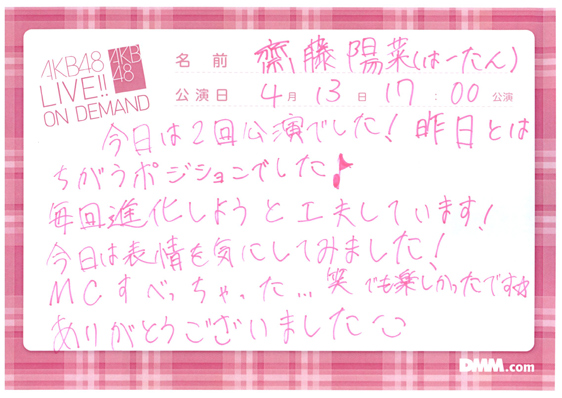 AKB48
LIVE!!
ON DEMAND
AKB
48
名前 齋藤陽菜(はーたん)
公演日 4月13日17:00公演
今日は2回公演でした!昨日とは
ちがうポジションでした♪
毎回進化しようと工夫しています!
今日は表情を気にしてみました!
MCすべっちゃった…笑 でも楽しかったです☆
ありがとうございました
DMM.com